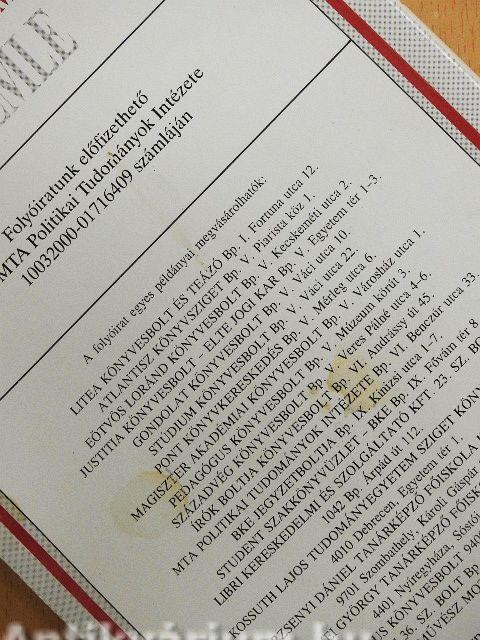 EMLE
Folyóiratunk előfizethető
MTA Politikai Tudományok Intézete
10032000-01716409 számláján
A folyóirat egyes példányai megvásárolhatók:
LITEA KÖNYVESBOLT ÉS TEÁZÓ Bp. I. Fortuna utca 12.
ATLANTISZ KÖNYVSZIGET Bp. V. Piarista köz 1.
EÖTVÖS LORÁND KÖNYVESBOLT Bp. V. Kecskeméti utca 2.
JUSTITIA KÖNYVESBOLT – ELTE JOGI KAR Bp. V. Egyetem tér 1–3.
GONDOLAT KÖNYVESBOLT Bp. V. Váci utca 10.
STÚDIUM KÖNYVESBOLT Bp. V. Váci utca 22.
PONT KÖNYVKERESKEDÉS Bp. V. Mérleg utca 6.
MAGISZTER AKADÉMIAI KÖNYVESBOLT Bp. V. Városház utca 1.
PEDAGÓGUS KÖNYVESBOLT Bp. V. Múzeum körút 3.
SZÁZADVÉG KÖNYVESBOLT Bp. Veres Pálné utca 4–6.
ÍRÓK BOLTJA KÖNYVESBOLT Bp. VI. Andrássy út 45.
MTA POLITIKAI TUDOMÁNYOK INTÉZETE Bp. VI. Benczúr utca 33.
BKE JEGYZETBOLTJA Bp. Kinizsi utca 1–7.
STUDENT SZAKKÖNYVÜZLET – BKE Bp. IX. Fővám tér 8
LIBRI KERESKEDELMI ÉS SZOLGÁLTATÓ KFT. 23. SZ. BO
1042 Bp. Árpád út 112.
KOSSUTH LAJOS TUDOMÁNYEGYETEM SZIGET KÖNY
4010 Debrecen, Egyetem tér 1.
SENYI DÁNIEL TANÁRKÉPZŐ FŐISKOLA
9701 Szombathely, Károli Gáspár
GYÖRGY TANÁRKÉPZŐ FŐIS
4401 Nyíregyháza, Sóstó
S KÖNYVESBOLT 940
36. SZ. BOLT Bp
ŰVÉSZ MO
Antikvárium.hu